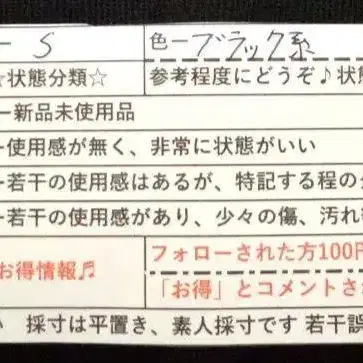 ー S 色ーブラック系
☆状態分類☆ 参考程度にどうぞ♪状
ー新品未使用品
ー使用感が無く、非常に状態がいい
ー若干の使用感はあるが、特記する程の
ー若干の使用感があり、少々の傷、汚れ
お得情報♬ フォローされた方100円
「お得」とコメントさ
い 採寸は平置き、素人採寸です 若干誤